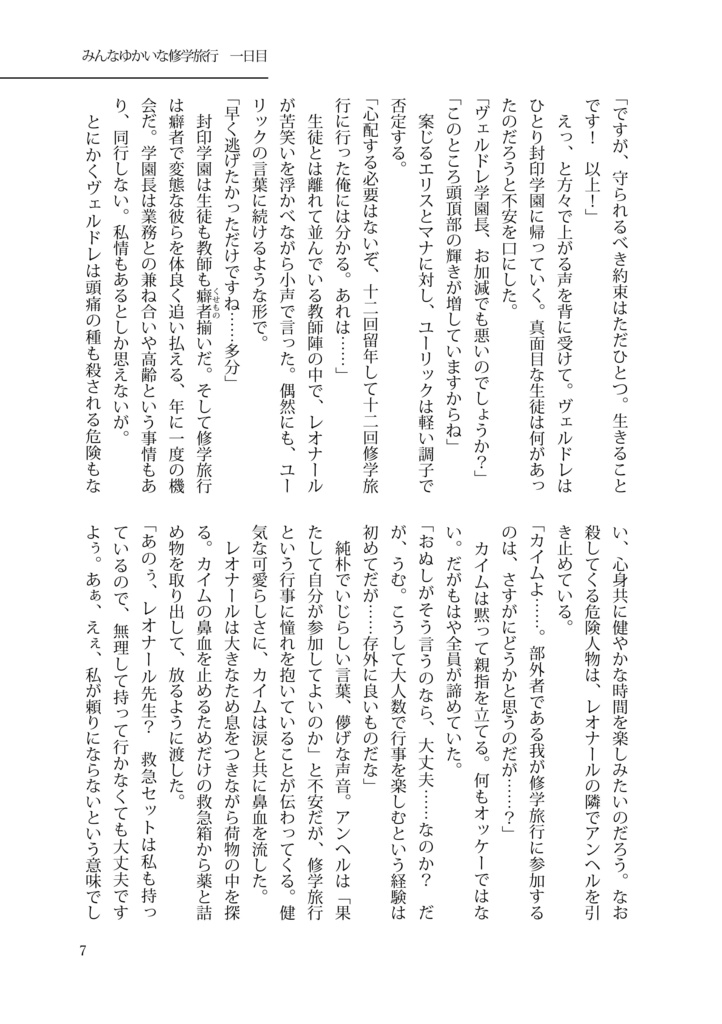 みんなゆかいな修学旅行　一日目
「ですが、守られるべき約束はただひとつ。生きること
です！　以上！」
　えっ、と方々で上がる声を背に受けて。ヴェルドレは
ひとり封印学園に帰っていく。真面目な生徒は何があっ
たのだろうと不安を口にした。
「ヴェルドレ学園長、お加減でも悪いのでしょうか？」
「このところ頭頂部の輝きが増していますからね」
　案じるエリスとマナに対し、ユーリックは軽い調子で
否定する。
「心配する必要はないぞ、十二回留年して十二回修学旅
行に行った俺には分かる。あれは……」
　生徒とは離れて並んでいる教師陣の中で、レオナール
が苦笑いを浮かべながら小声で言った。偶然にも、ユー
リックの言葉に続けるような形で。
「早く逃げたかっただけですね……多分」
　封印学園は生徒も教師も癖者くせもの揃いだ。そして修学旅行
は癖者で変態な彼らを体良く追い払える、年に一度の機
会だ。学園長は業務との兼ね合いや高齢という事情もあ
り、同行しない。私情もあるとしか思えないが。
　とにかくヴェルドレは頭痛の種も殺される危険もな
い、心身共に健やかな時間を楽しみたいのだろう。なお
殺してくる危険人物は、レオナールの隣でアンヘルを引
き止めている。
「カイムよ……。部外者である我が修学旅行に参加する
のは、さすがにどうかと思うのだが……？」
　カイムは黙って親指を立てる。何もオッケーではな
い。だがもはや全員が諦めていた。
「おぬしがそう言うのなら、大丈夫……なのか？　だ
が、うむ。こうして大人数で行事を楽しむという経験は
初めてだが……存外に良いものだな」
　純朴でいじらしい言葉、儚げな声音。アンヘルは「果
たして自分が参加してよいのか」と不安だが、修学旅行
という行事に憧れを抱いていることが伝わってくる。健
気な可愛らしさに、カイムは涙と共に鼻血を流した。
　レオナールは大きなため息をつきながら荷物の中を探
る。カイムの鼻血を止めるためだけの救急箱から薬と詰
め物を取り出して、放るように渡した。
「あのぅ、レオナール先生？　救急セットは私も持っ
ているので、無理して持って行かなくても大丈夫です
よぅ。あぁ、えぇ、私が頼りにならないという意味でし
7